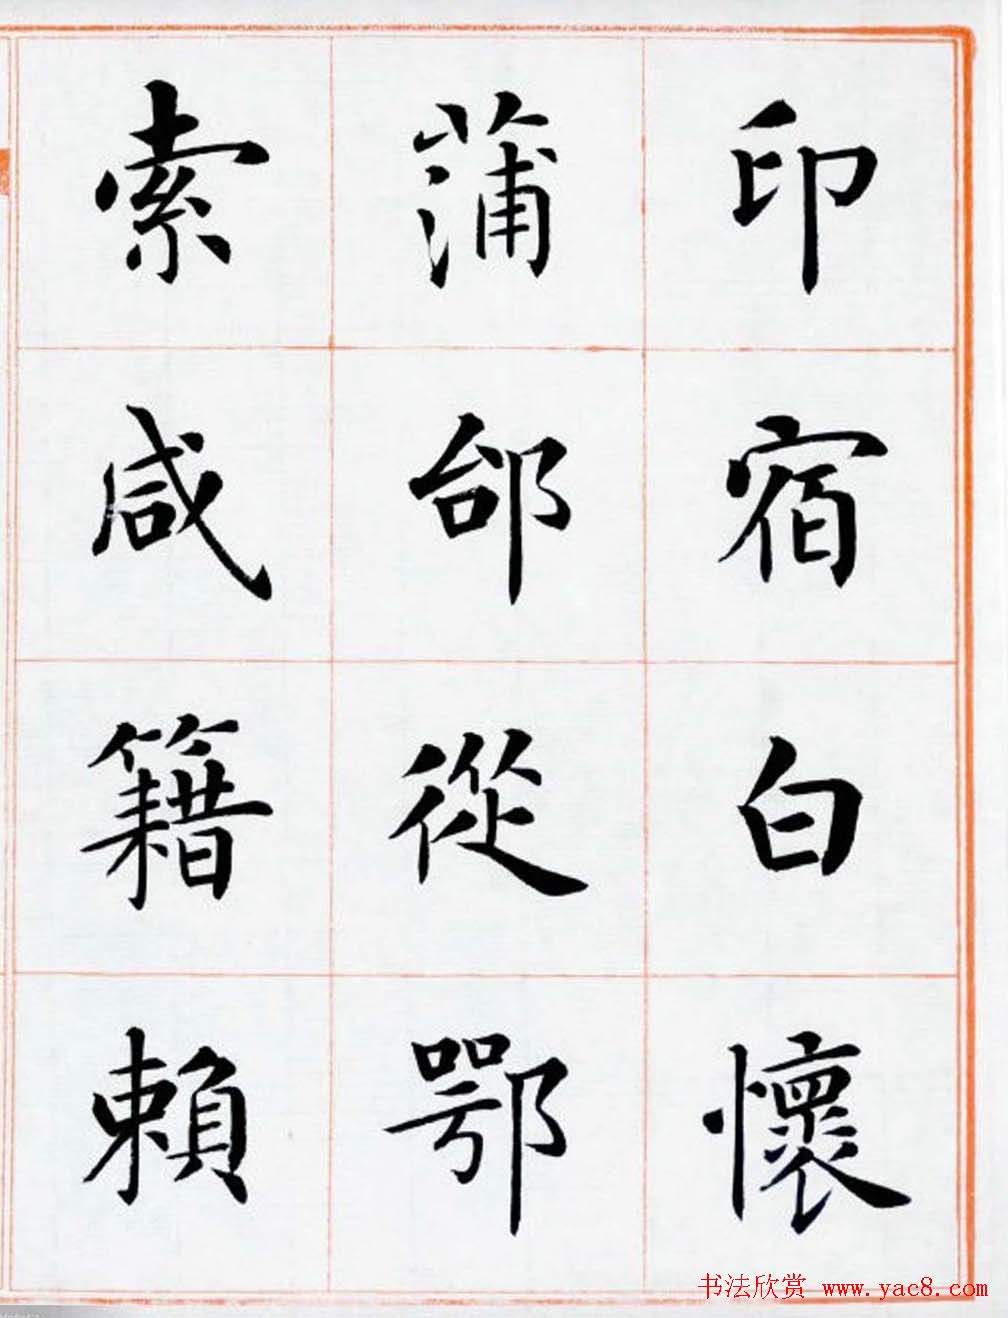 印宿白懷
蒲邰從鄂
索咸籍賴
书法欣赏 www.yac8.com